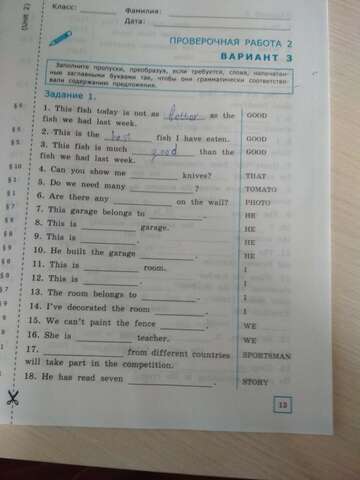 (Unit 2)
Класс: Фамилия:
Дата:
ПРОВЕРОЧНАЯ РАБОТА 2
ВАРИАНТ 3
Заполните пропуски, преобразуя, если требуется, слова, напечатан-
ные заглавными буквами так, чтобы они грамматически соответство-
вали содержанию предложения.
Задание 1.
1. This fish today is not as better as the GOOD
fish we had last week.
2. This is the best fish I have eaten. GOOD
3. This fish is much good than the GOOD
fish we had last week.
4. Can you show me knives? THAT
5. Do we need many ? TOMATO
6. Are there any on the wall? PHOTO
7. This garage belongs to . HE
8. This is garage. HE
9. This is . HE
10. He built the garage . HE
11. This is room. I
12. This is . I
13. The room belongs to . I
14. I've decorated the room . I
15. We can't paint the fence . WE
16. She is teacher. WE
17. from different countries SPORTSMAN
will take part in the competition.
18. He has read seven . STORY
13